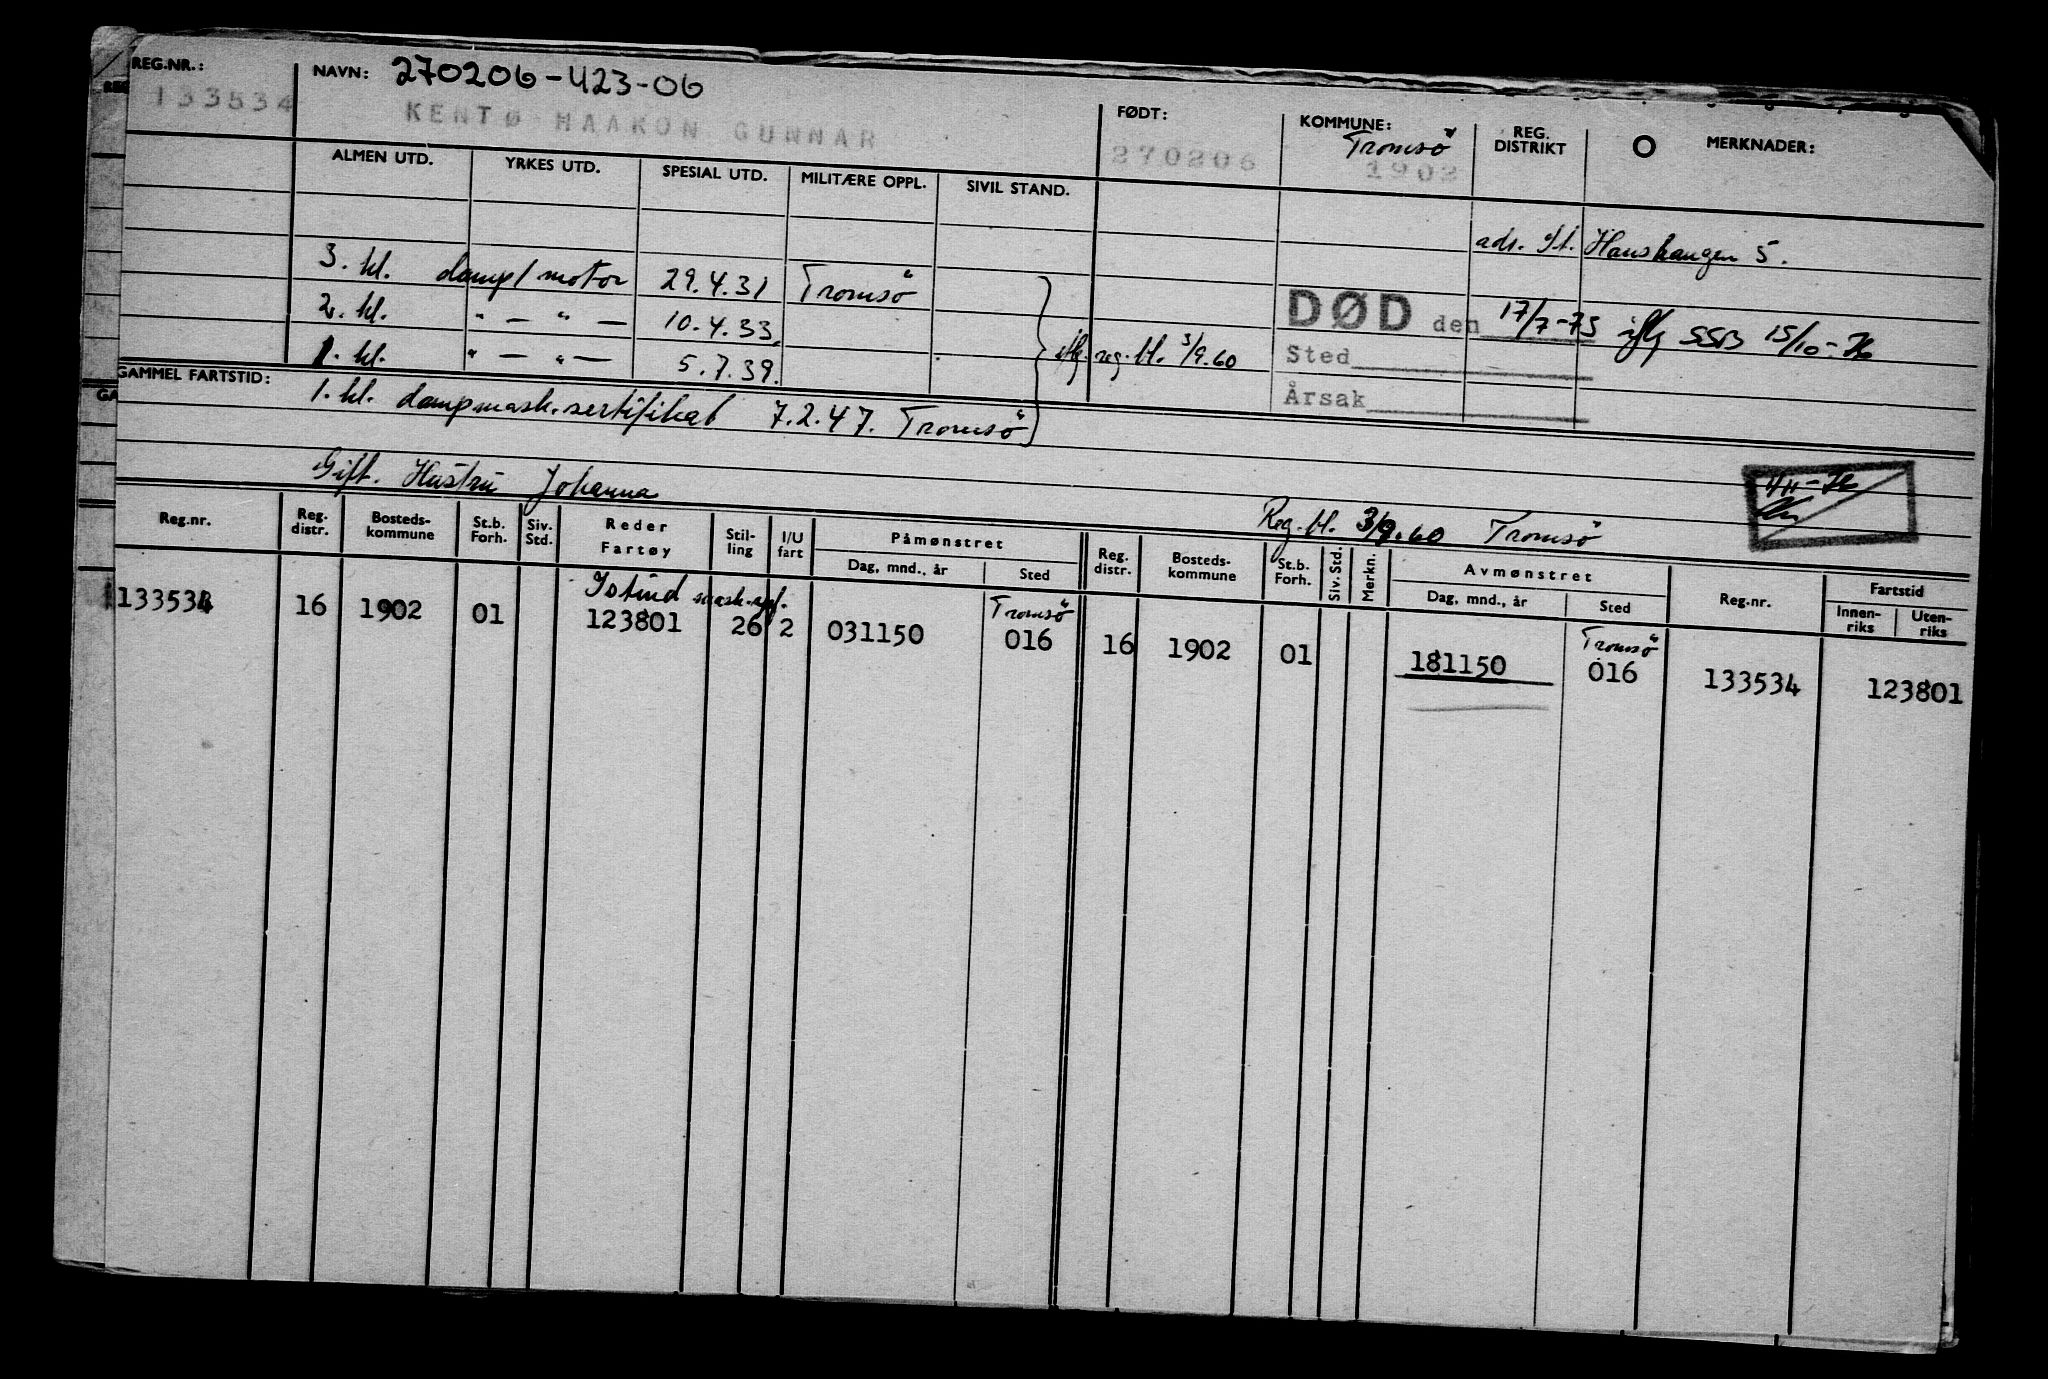 REG.NR.: NAVN: 270206-423-06
133534 KENTØ HAAKON GUNNAR FØDT: 270206 KOMMUNE: Tromsö 1902 REG. DISTRIKT O MERKNADER:
ALMEN UTD. YRKES UTD. SPESIAL UTD. MILITÆRE OPPL. SIVIL STAND.
adr. st. Hanshaugen 5.
3. kl. damp/motor 29.4.31 Tromsö
2. kl. " — " — 10.4.33. DØD den 17/7-75 iflg SSB 15/10-76
1. kl. " — " — 5.7.39. iflg. reg. bl. 3/9.60 Sted
Årsak
GAMMEL FARTSTID: 1. kl. dampmask.sertifikat 7.2.47. Tromsö
Gift. Hustru Johanna
Reg. bl. 3/9.60 Tromsö
Reg.nr. Reg. distr. Bosteds-kommune St.b. Forh. Siv. Std. Reder Fartøy Stil-ling I/U fart Påmønstret Dag, mnd., år Sted Reg. distr. Bosteds-kommune St.b. Forh. Siv. Std. Merkn. Avmønstret Dag, mnd., år Sted Reg.nr. Fartstid Innen-riks Uten-riks
Istind Tromsö Tromsö
133534 16 1902 01 123801 26 2 031150 016 16 1902 01 181150 016 133534 123801